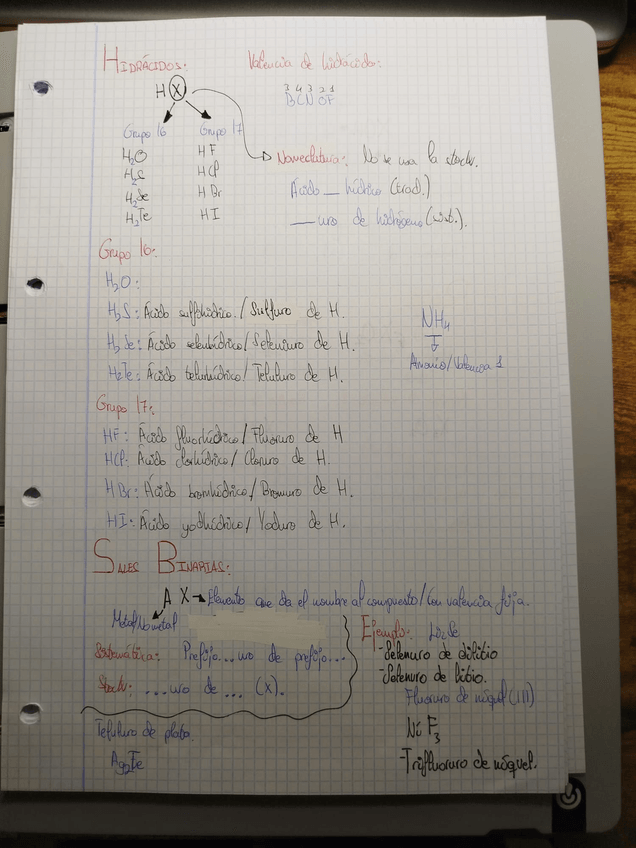 HIDRÁCIDOS:
Valencia de hidrácido:
H X
3 4 3 2 1
B C N O F
Grupo 16
Grupo 17
H2O
HF
H2S
HCl
H2Se
HBr
H2Te
HI
Nomenclatura: No se usa la stock.
Ácido __ hídrico (trad.)
___ uro de hidrógeno (sist.).
Grupo 16:
H2O:
H2S: Ácido sulfhídrico / Sulfuro de H.
H2Se: Ácido selenhídrico / Seleniuro de H.
H2Te: Ácido telurhídrico / Telururo de H.
NH4
Amonio / Valencia 1
Grupo 17:
HF: Ácido fluorhídrico / Fluoruro de H
HCl: Ácido clorhídrico / Cloruro de H.
HBr: Ácido bromhídrico / Bromuro de H.
HI: Ácido yodhídrico / Yoduro de H.
SALES BINARIAS:
A X → Elemento que da el nombre al compuesto / Con valencia fija.
Metal No metal
Sistemática: Prefijo...uro de prefijo...
Stock: ...uro de ... (X).
Ejemplo: Li2Se
- Selenuro de dilitio
- Selenuro de litio.
Fluoruro de níquel (III)
NiF3
- Trifluoruro de níquel.
Telururo de plata.
Ag2Te